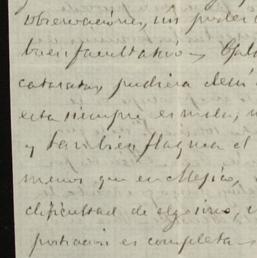 observaciones, sin poder
buen facultativo
cataratas, pudiera
esta siempre es mala,
y tambien flaquea el
menos que en Mejico,
dificultad de
portacion es completa